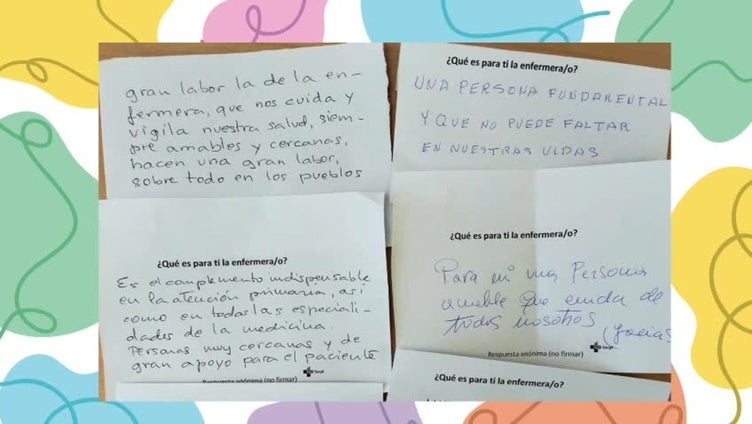 gran labor la de la en-
fermera, que nos cuida y
vigila nuestra salud, siem-
pre amables y cercanas,
hacen una gran labor,
sobre todo en los pueblos
¿Qué es para ti la enfermera/o?
UNA PERSONA FUNDAMENTAL
Y QUE NO PUEDE FALTAR
EN NUESTRAS VIDAS
¿Qué es para ti la enfermera/o?
Es el complemento indispensable
en la atención primaria, así
como en todas las especiali-
dades de la medicina.
Personas muy cercanas y de
gran apoyo para el paciente
Respuesta anónima (no firmar)
¿Qué es para ti la enfermera/o?
Para mi una Persona
amable que cuida de
todos nosotros
(gracias
Respuesta anónima (no firmar)
¿Qué es para ti la enfermera/o?